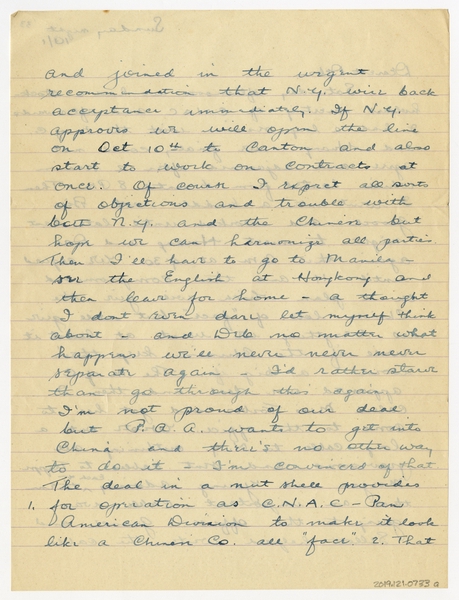 and joined in the urgent
recommendation that N.Y. will back
acceptance immediately. If N.Y.
approves we will open the line
on Oct 10th to Canton and also
start to work on contracts at
once. Of course I expect all sorts
of objections and trouble with
both N.Y. and the Chinese but
hope we can harmonize all parties
Then I'll have to go to Manila -
see the English at Hongkong and
then leave for home - a thought
I dont even dare let myself think
about - and Deb no matter what
happens we'll never never never
separate again - I'd rather starve
than go through this again.
I'm not proud of our deal
but P.A.A. wants to get into
China and there's no other way
to do it I'm convinced of that
The deal in a nut shell provides
1. for operation as C.N.A.C - Pan
American Division to make it look
like a Chinese Co. all "face". 2. That
2019.121.0733 a